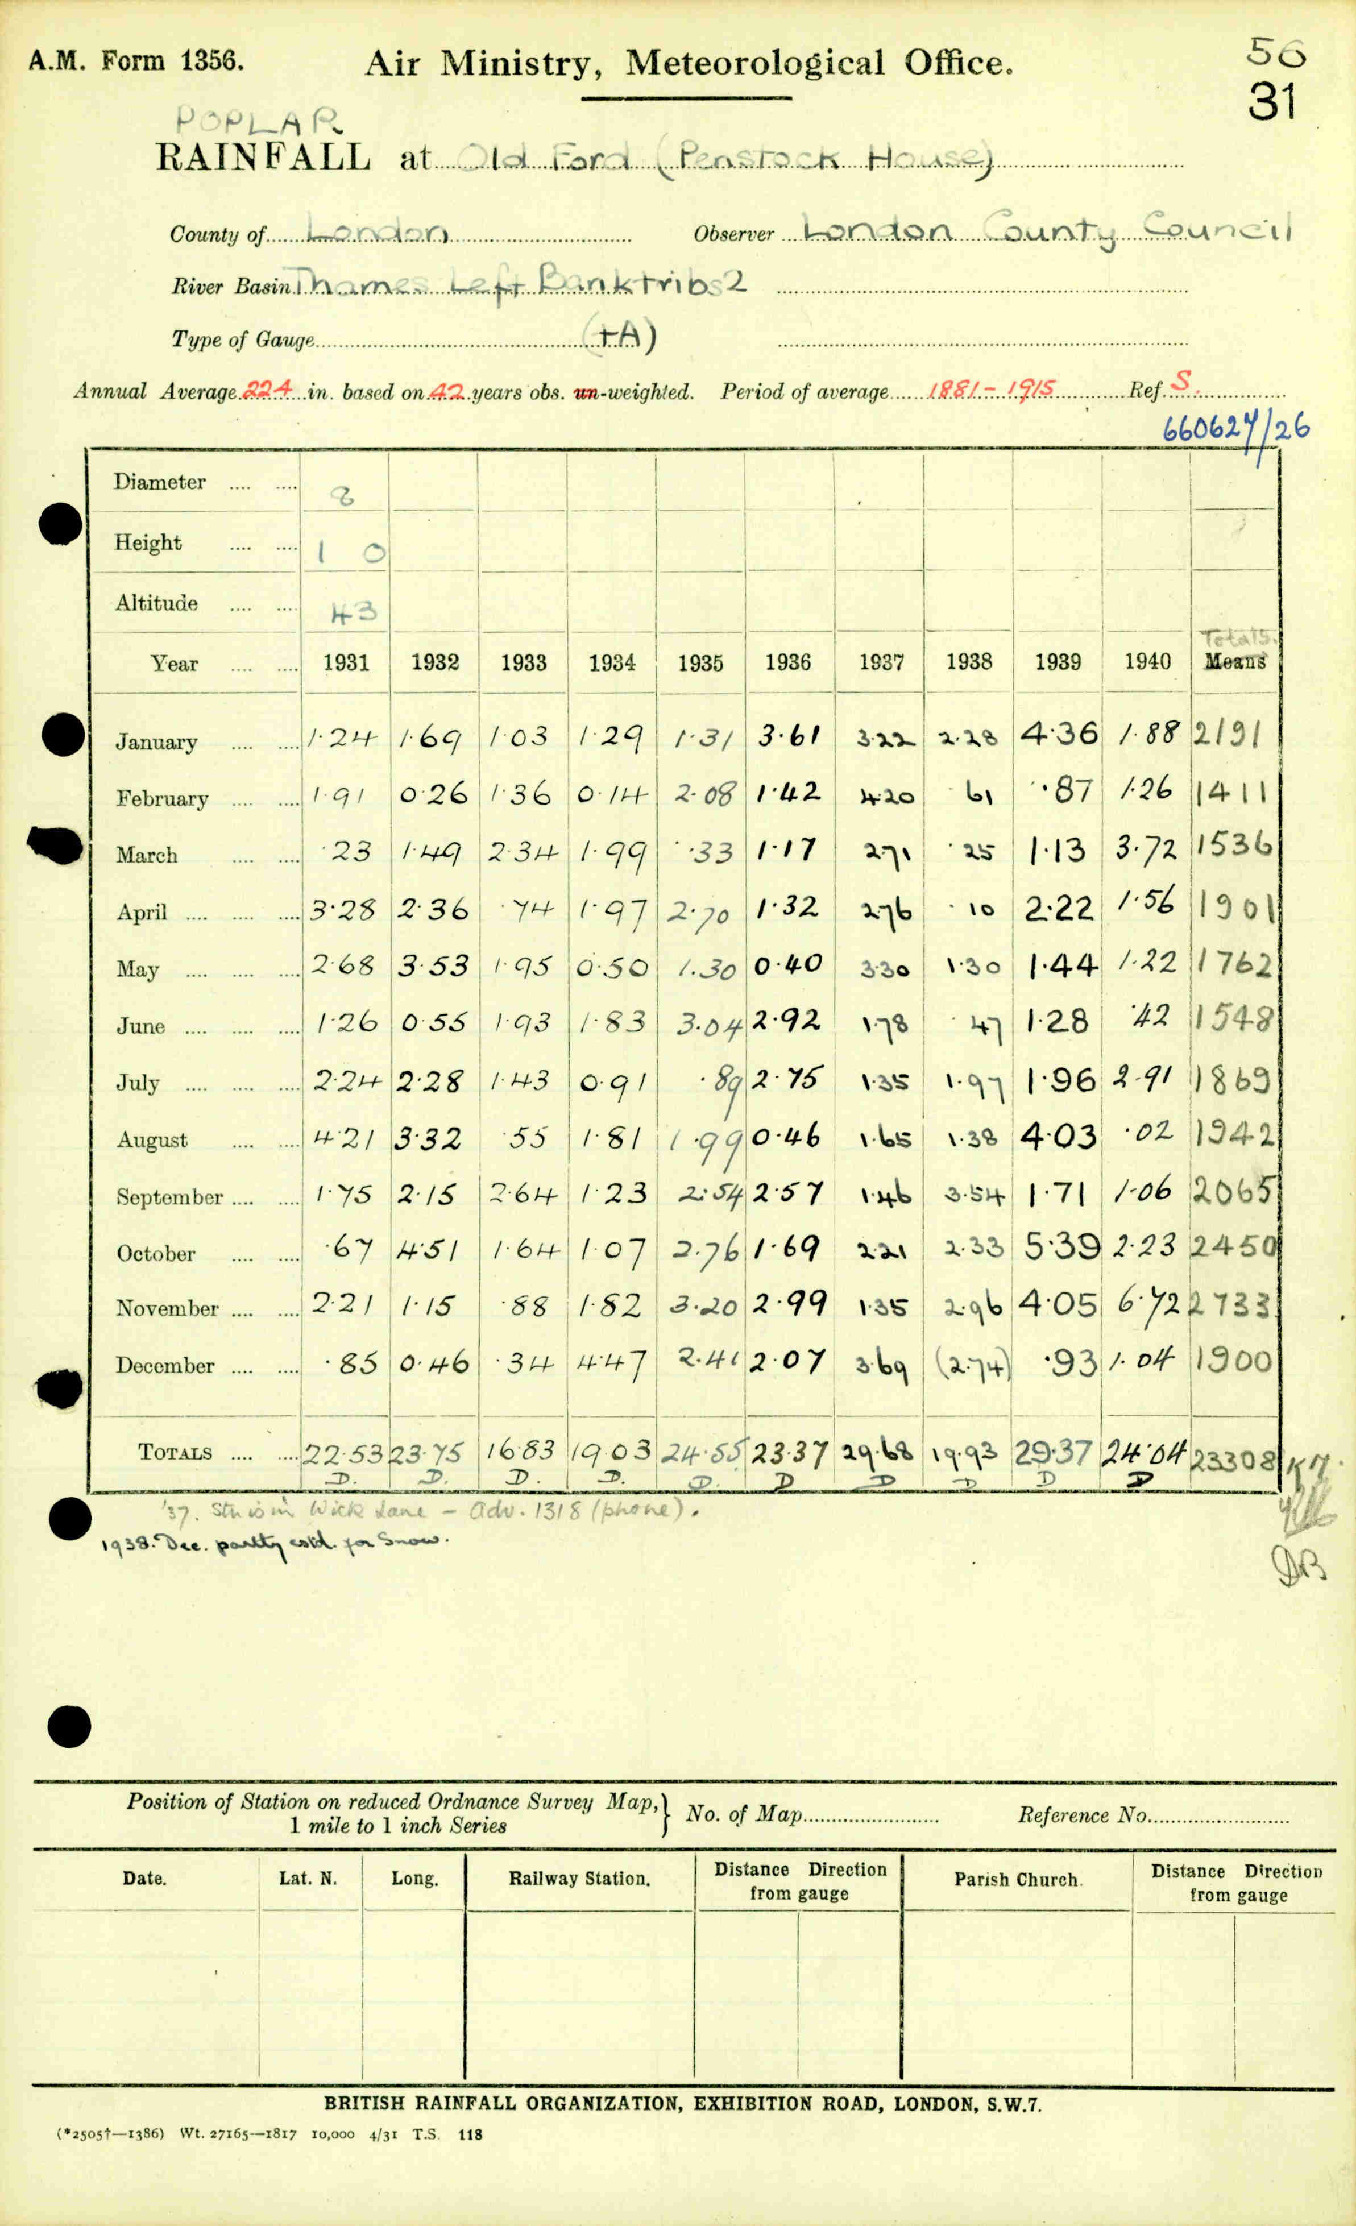 A.M. Form 1356.
Air Ministry, Meteorological Office.
56
31
POPLAR
RAINFALL at Old Ford (Penstock House)
County of London Observer London County Council
River Basin Thames Left Bank tribs 2
Type of Gauge (+A)
Annual Average 22.4 in. based on 42 years obs. un-weighted. Period of average 1881-1915 Ref. S.
660627/26
Diameter 8
Height 1 0
Altitude 43
Totals
Year 1931 1932 1933 1934 1935 1936 1937 1938 1939 1940 Means
January 1.24 1.69 1.03 1.29 1.31 3.61 3.22 2.28 4.36 1.88 2191
February 1.91 0.26 1.36 0.14 2.08 1.42 4.20 .61 .87 1.26 1411
March .23 1.49 2.34 1.99 .33 1.17 2.71 .25 1.13 3.72 1536
April 3.28 2.36 .74 1.97 2.70 1.32 2.76 .10 2.22 1.56 1901
May 2.68 3.53 1.95 0.50 1.30 0.40 3.30 1.30 1.44 1.22 1762
June 1.26 0.55 1.93 1.83 3.04 2.92 1.78 .47 1.28 .42 1548
July 2.24 2.28 1.43 0.91 .89 2.75 1.35 1.97 1.96 2.91 1869
August 4.21 3.32 .55 1.81 1.99 0.46 1.65 1.38 4.03 .02 1942
September 1.75 2.15 2.64 1.23 2.54 2.57 1.46 3.54 1.71 1.06 2065
October .67 4.51 1.64 1.07 2.76 1.69 2.21 2.33 5.39 2.23 2450
November 2.21 1.15 .88 1.82 3.20 2.99 1.35 2.96 4.05 6.72 2733
December .85 0.46 .34 4.47 2.41 2.07 3.69 (2.74) .93 1.04 1900
TOTALS 22.53 23.75 16.83 19.03 24.55 23.37 29.68 19.93 29.37 24.04 23308
D. D. D. D. D. D D D D D
'37. Stn is in Wick Lane - Adv. 1318 (phone).
1938. Dec. partly estd. for Snow.
DB
Position of Station on reduced Ordnance Survey Map, 1 mile to 1 inch Series } No. of Map Reference No.
Date. Lat. N. Long. Railway Station. Distance Direction from gauge Parish Church. Distance Direction from gauge
BRITISH RAINFALL ORGANIZATION, EXHIBITION ROAD, LONDON, S.W.7.
(*2505†—1386) Wt. 27165—1817 10,000 4/31 T.S. 118